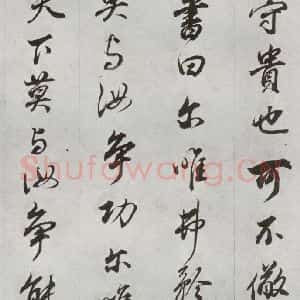 守貴也可不儆
書曰尔唯弗矜
莫与汝争功尔唯
天下莫与汝争能
Shufawang.cn